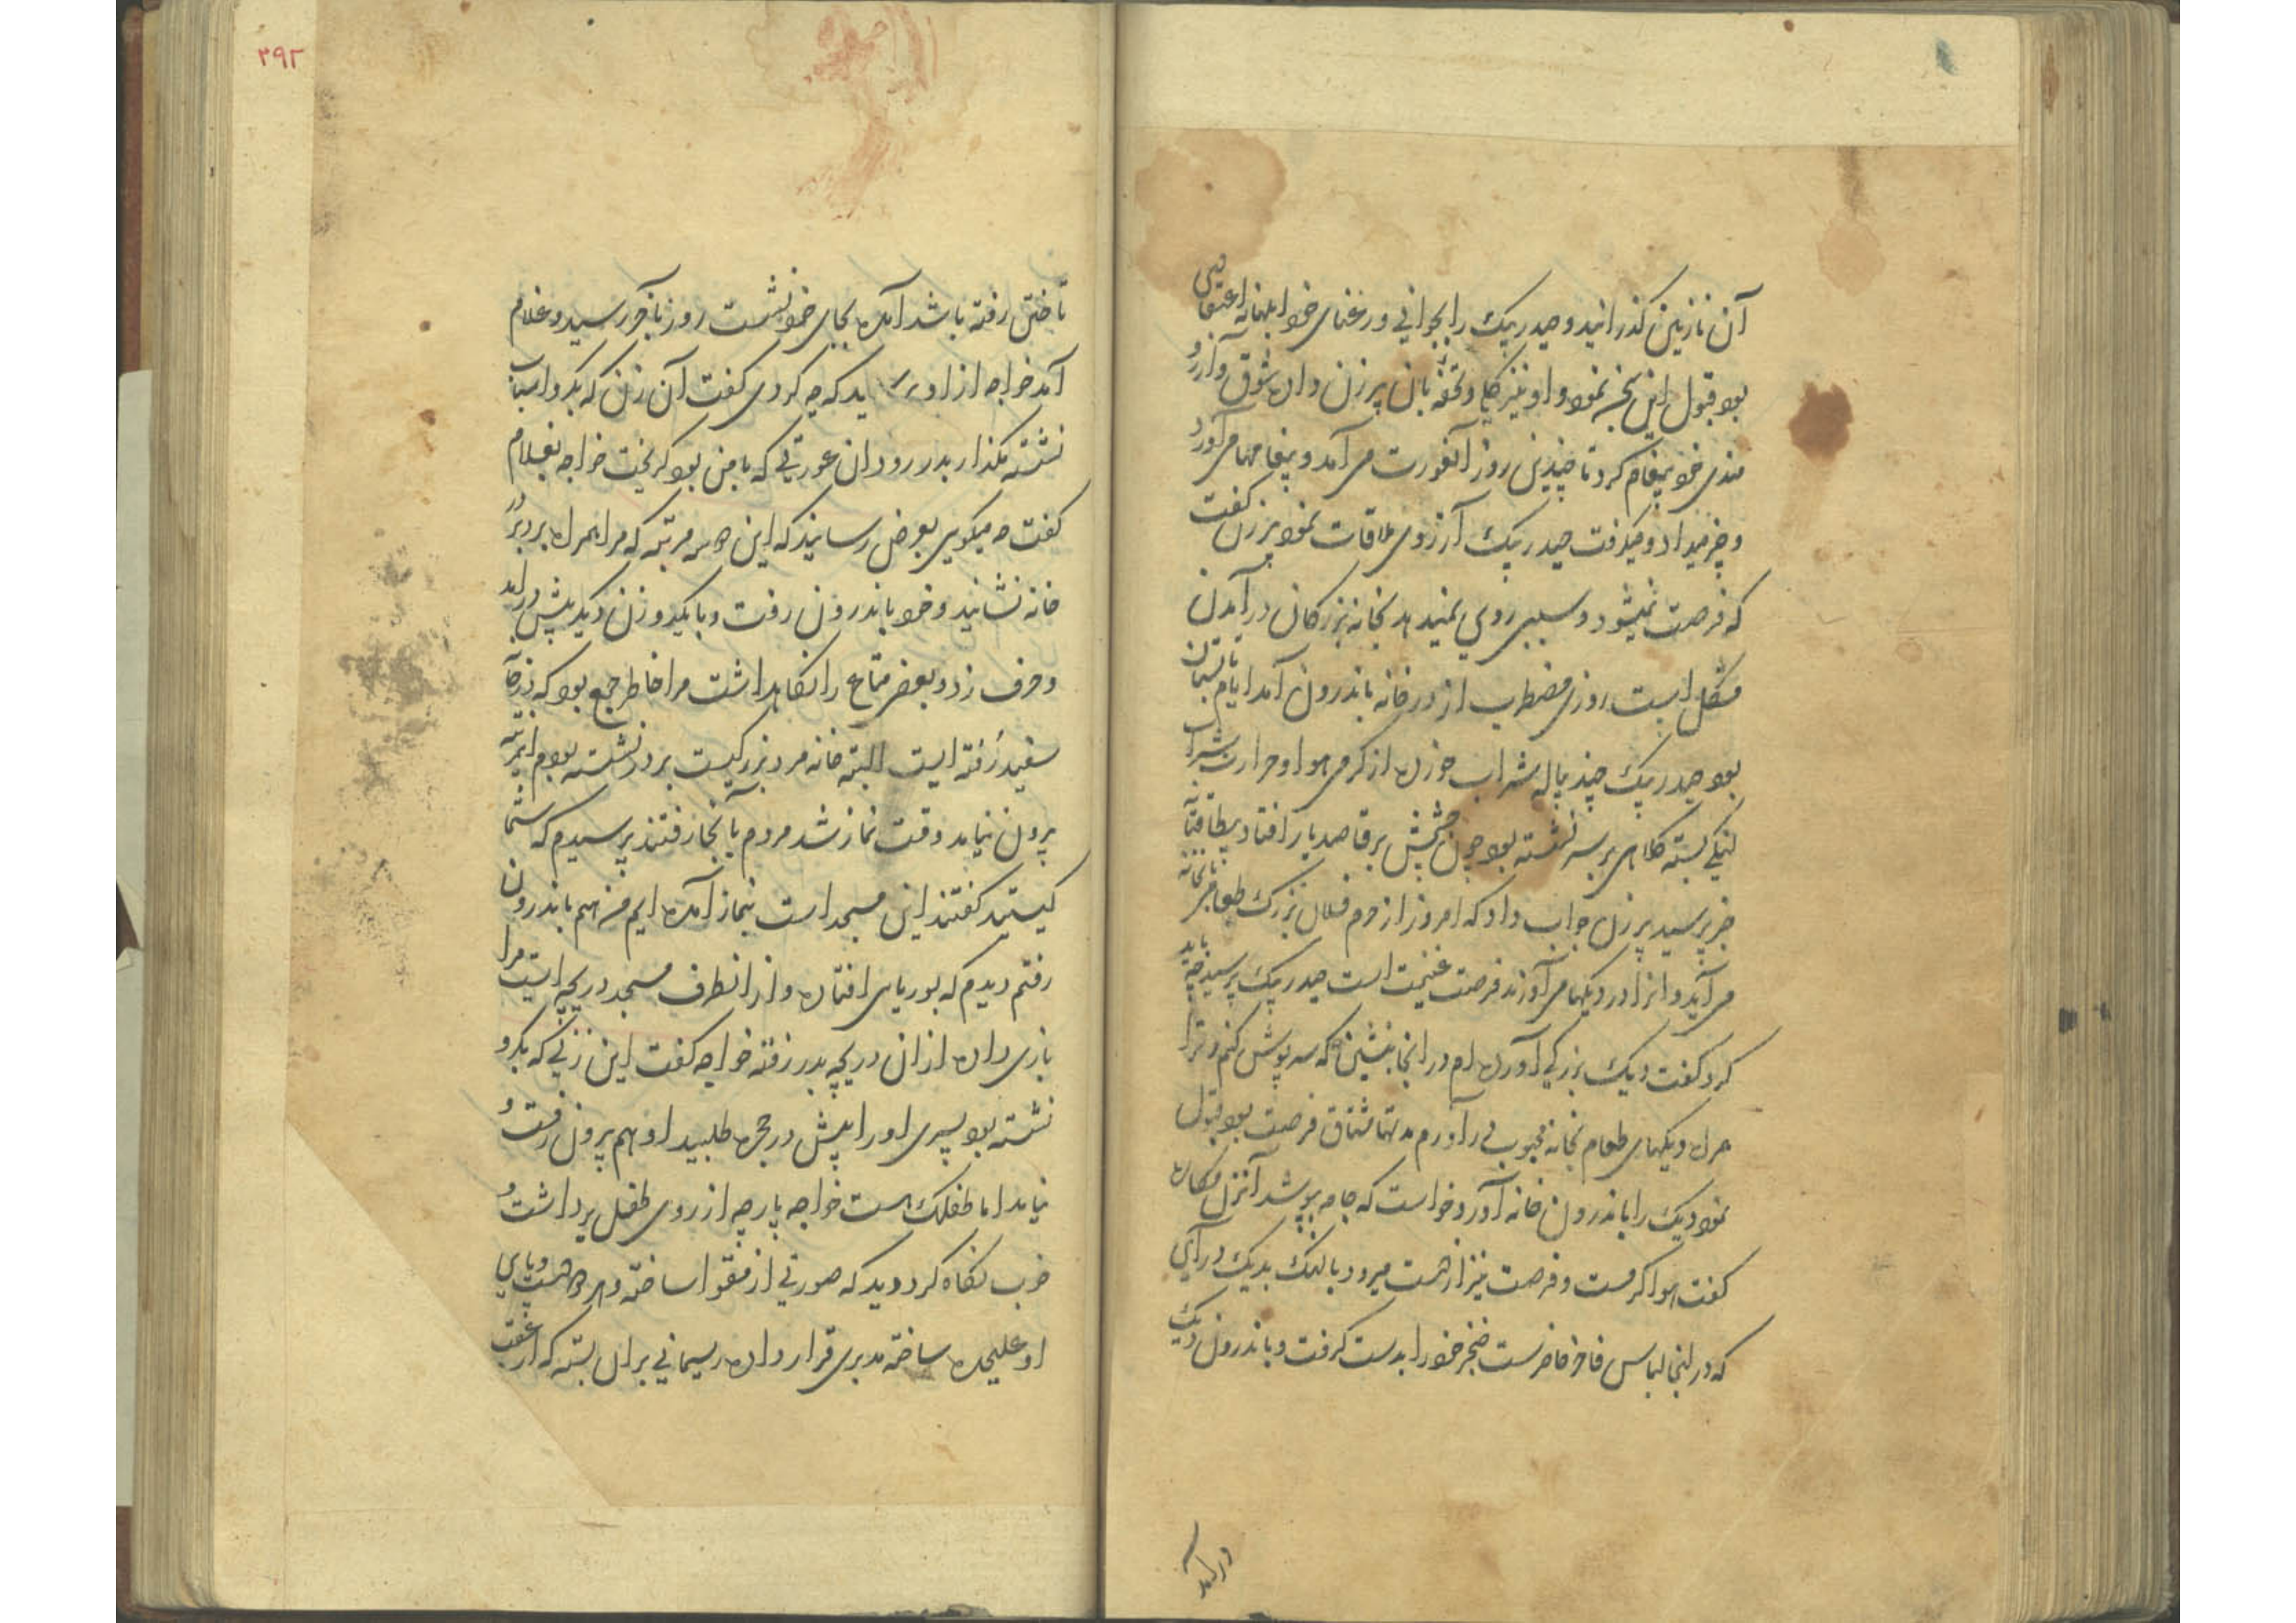 آن نازنین کذرانید و حیدر بیک را بجوانی و رعنای خود ابلهانه اعتقادی
بود قبول این سخن نمود و او نیز کلی و تحفه بان پیرزن داده شوق و آرزو
مندی خود پیغام کرد تا چندین روز آنعورت می آمد و پیغامها می آورد
و خبر میداد و میکرفت حیدر بیک آرزوی ملاقات نمود پیرزن کفت
که فرصت نمیشود و سببی روی نمیدهد بخانه بزرکان در آمدن
مشکل است روزی مضطرب از در خانه باندرون آمد ایام تابستان
بود حیدر بیک چند پیاله شراب خورده از کرمی هوا و حرارت شراب
لنکی بسته کلاهی بر سر نشسته بود چون چشمش بر قاصد یار افتاد بیطاقتانه
خبر پرسید پیرزن جواب داد که امروز از حرم فلان بزرک طعام بخانه
می آید و انرا در دیکها می آورند فرصت غنیمت است حیدر بیک پرسید چه باید
کرد کفت دیک بزرکی آورده ام در انجا بنشین که سرپوش کنم و ترا
همراه دیکهای طعام بخانه محبوب در آورم مدتها مشتاق فرصت بود قبول
نمود دیک را باندرون خانه آورد و خواست که جامه بپوشد آنزن مکاره
کفت هوا کرمست و فرصت نیز از دست میرود با لنک بدیک در آی
که در اینجا لباس فاخر حاضرست خنجر خود را بدست کرفت و باندرون دیک
در آمد
۲۹۲
تاختن رفته باشد آمده بجای خود نشست روز بآخر رسید و غلام
آمد خواجه از او پرسید که چه کردی کفت آن زن که بکرو اسباب
نشسته نکذار بدر رود ان عورتی که با من بود کریخت خواجه بغلام
کفت چه میکویی بعرض رسانید که این مرتبه که مرا همراه برد بر در
خانه نشانید و خود باندرون رفت و با یکدو زن دیکر پیش در آمد
و حرف زد و بعضی متاع را نکاهداشت مرا خاطر جمع بود که
سفید رفته است البته خانه مرد بزرکیست بر در نشسته بودم
بیرون نیامد وقت نماز شد مردم بآنجا رفتند پرسیدم که شما
کیستید کفتند این مسجد است بنماز آمده ایم من هم باندرون
رفتم دیدم که بوریای افتاده و از انطرف مسجد دریچه است مرا
بازی داده از ان دریچه بدر رفته خواجه کفت این زنی که بکرو
نشسته بود پسری او را پیش در حجره طلبید او هم بیرون رفت و
نیامد اما طفلک است خواجه پارچه از روی طفل برداشت و
خوب نکاه کرد دید که صورتی از مقوا ساخته و دست و پای
او علیحده ساخته مدبری قرار داده ریسمانی بر ان بسته که از عقب